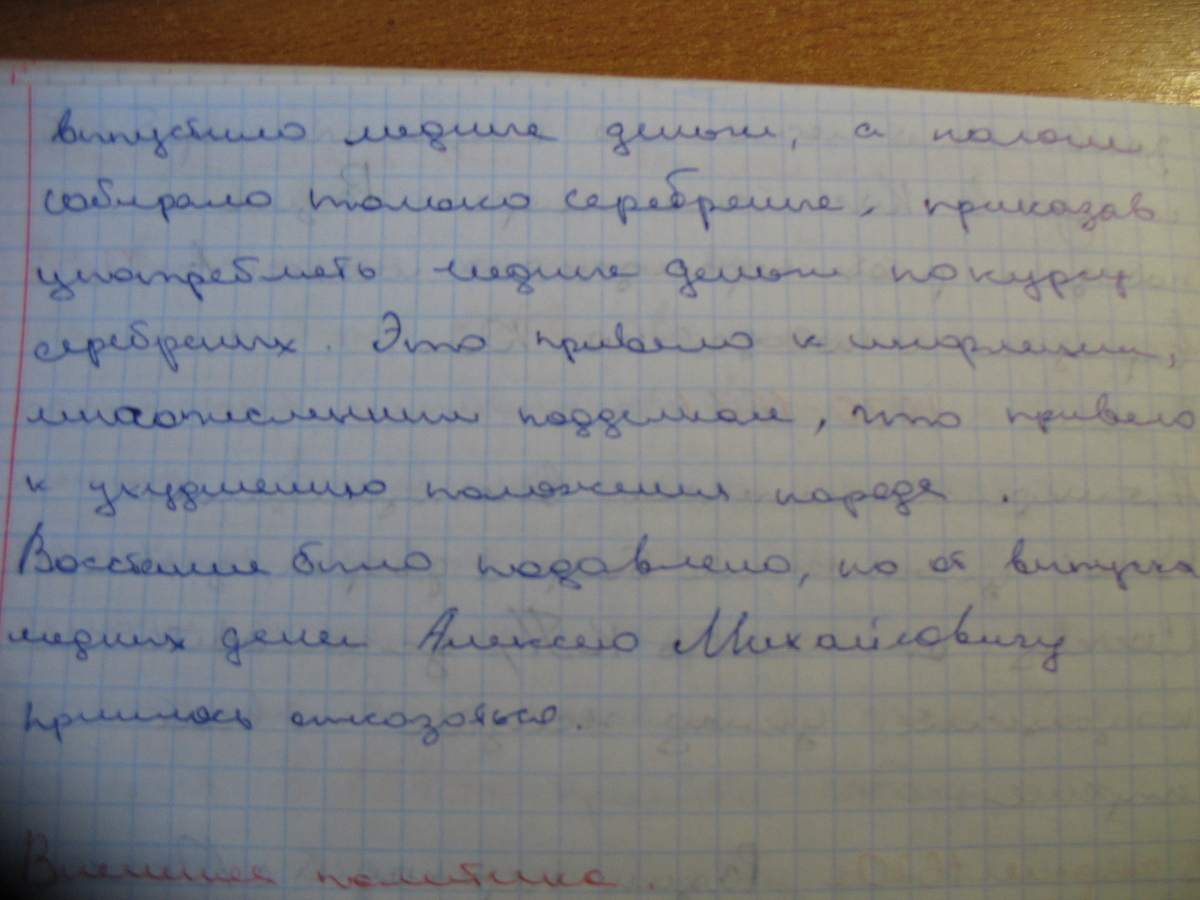 выпустило медные деньги, а налоги
собирало только серебряные, приказав
употреблять медные деньги по курсу
серебряных. Это привело к инфляции,
многочисленным подделкам, что привело
к ухудшению положения народа.
Восстание было подавлено, но от выпуска
медных денег Алексею Михайловичу
пришлось отказаться.
Внешняя политика.